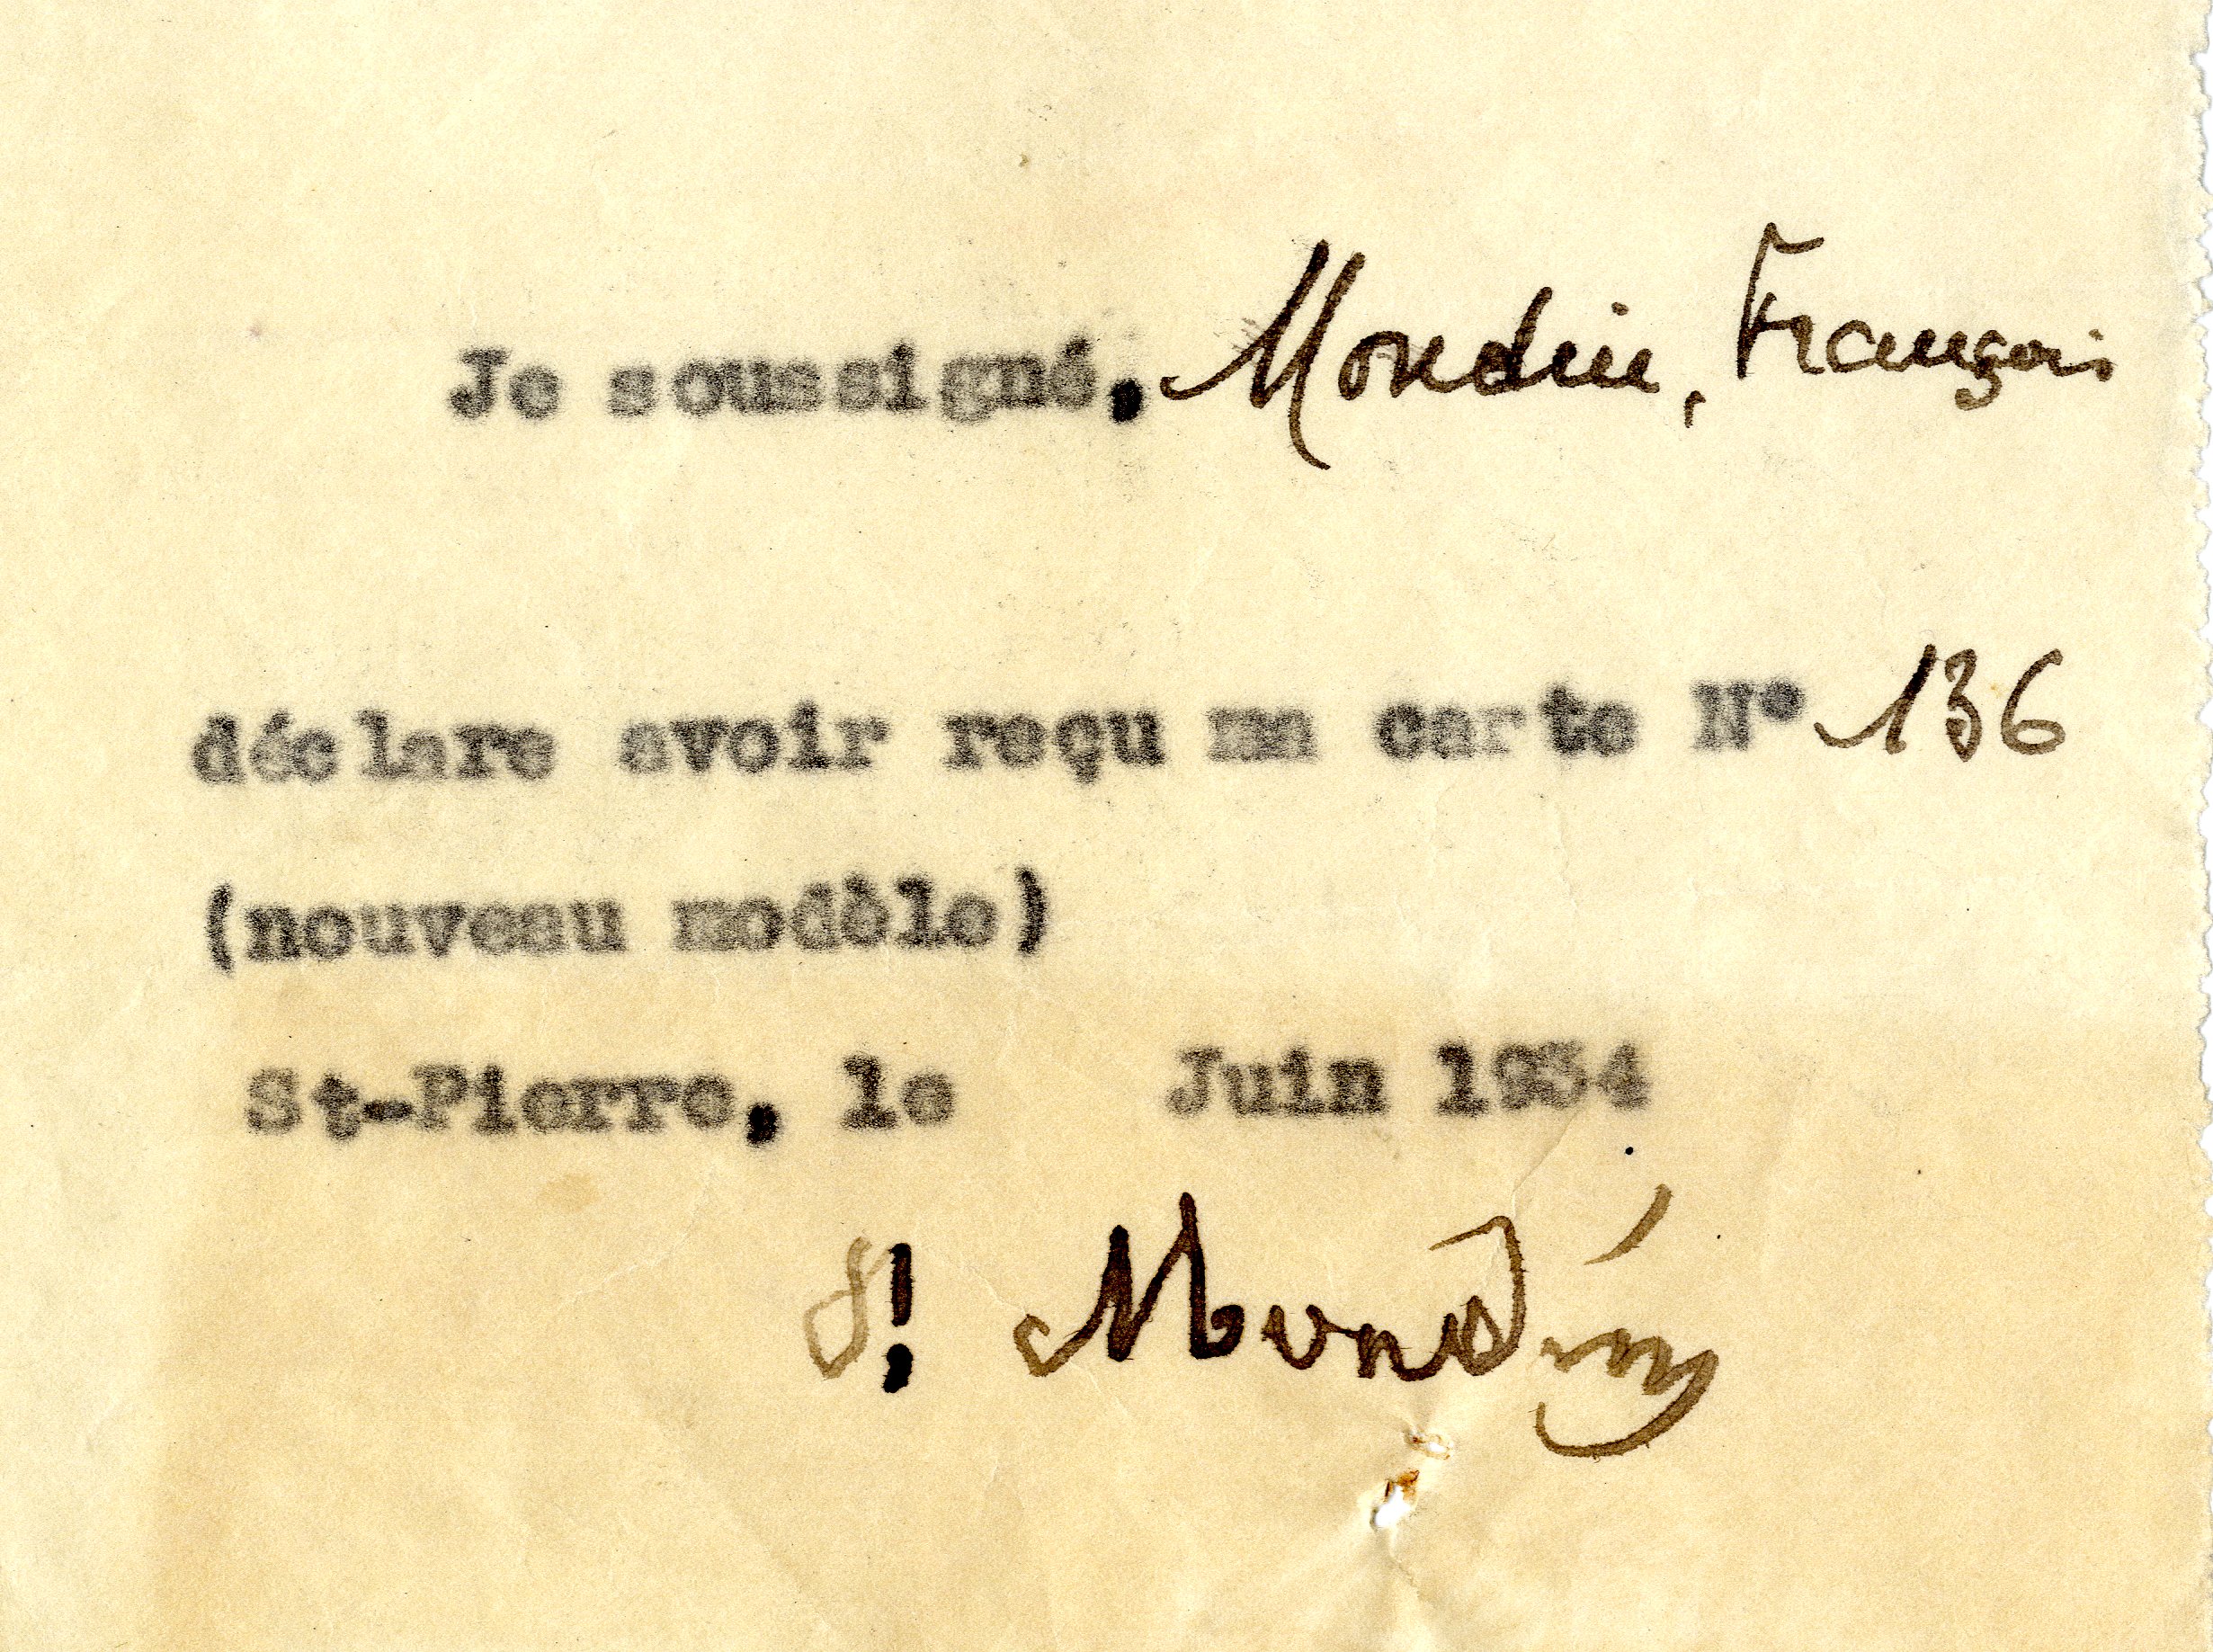 Je soussigné, Mondin, François
déclare avoir reçu ma carte N° 136
(nouveau modèle)
St-Pierre, le Juin 1934
Mondin